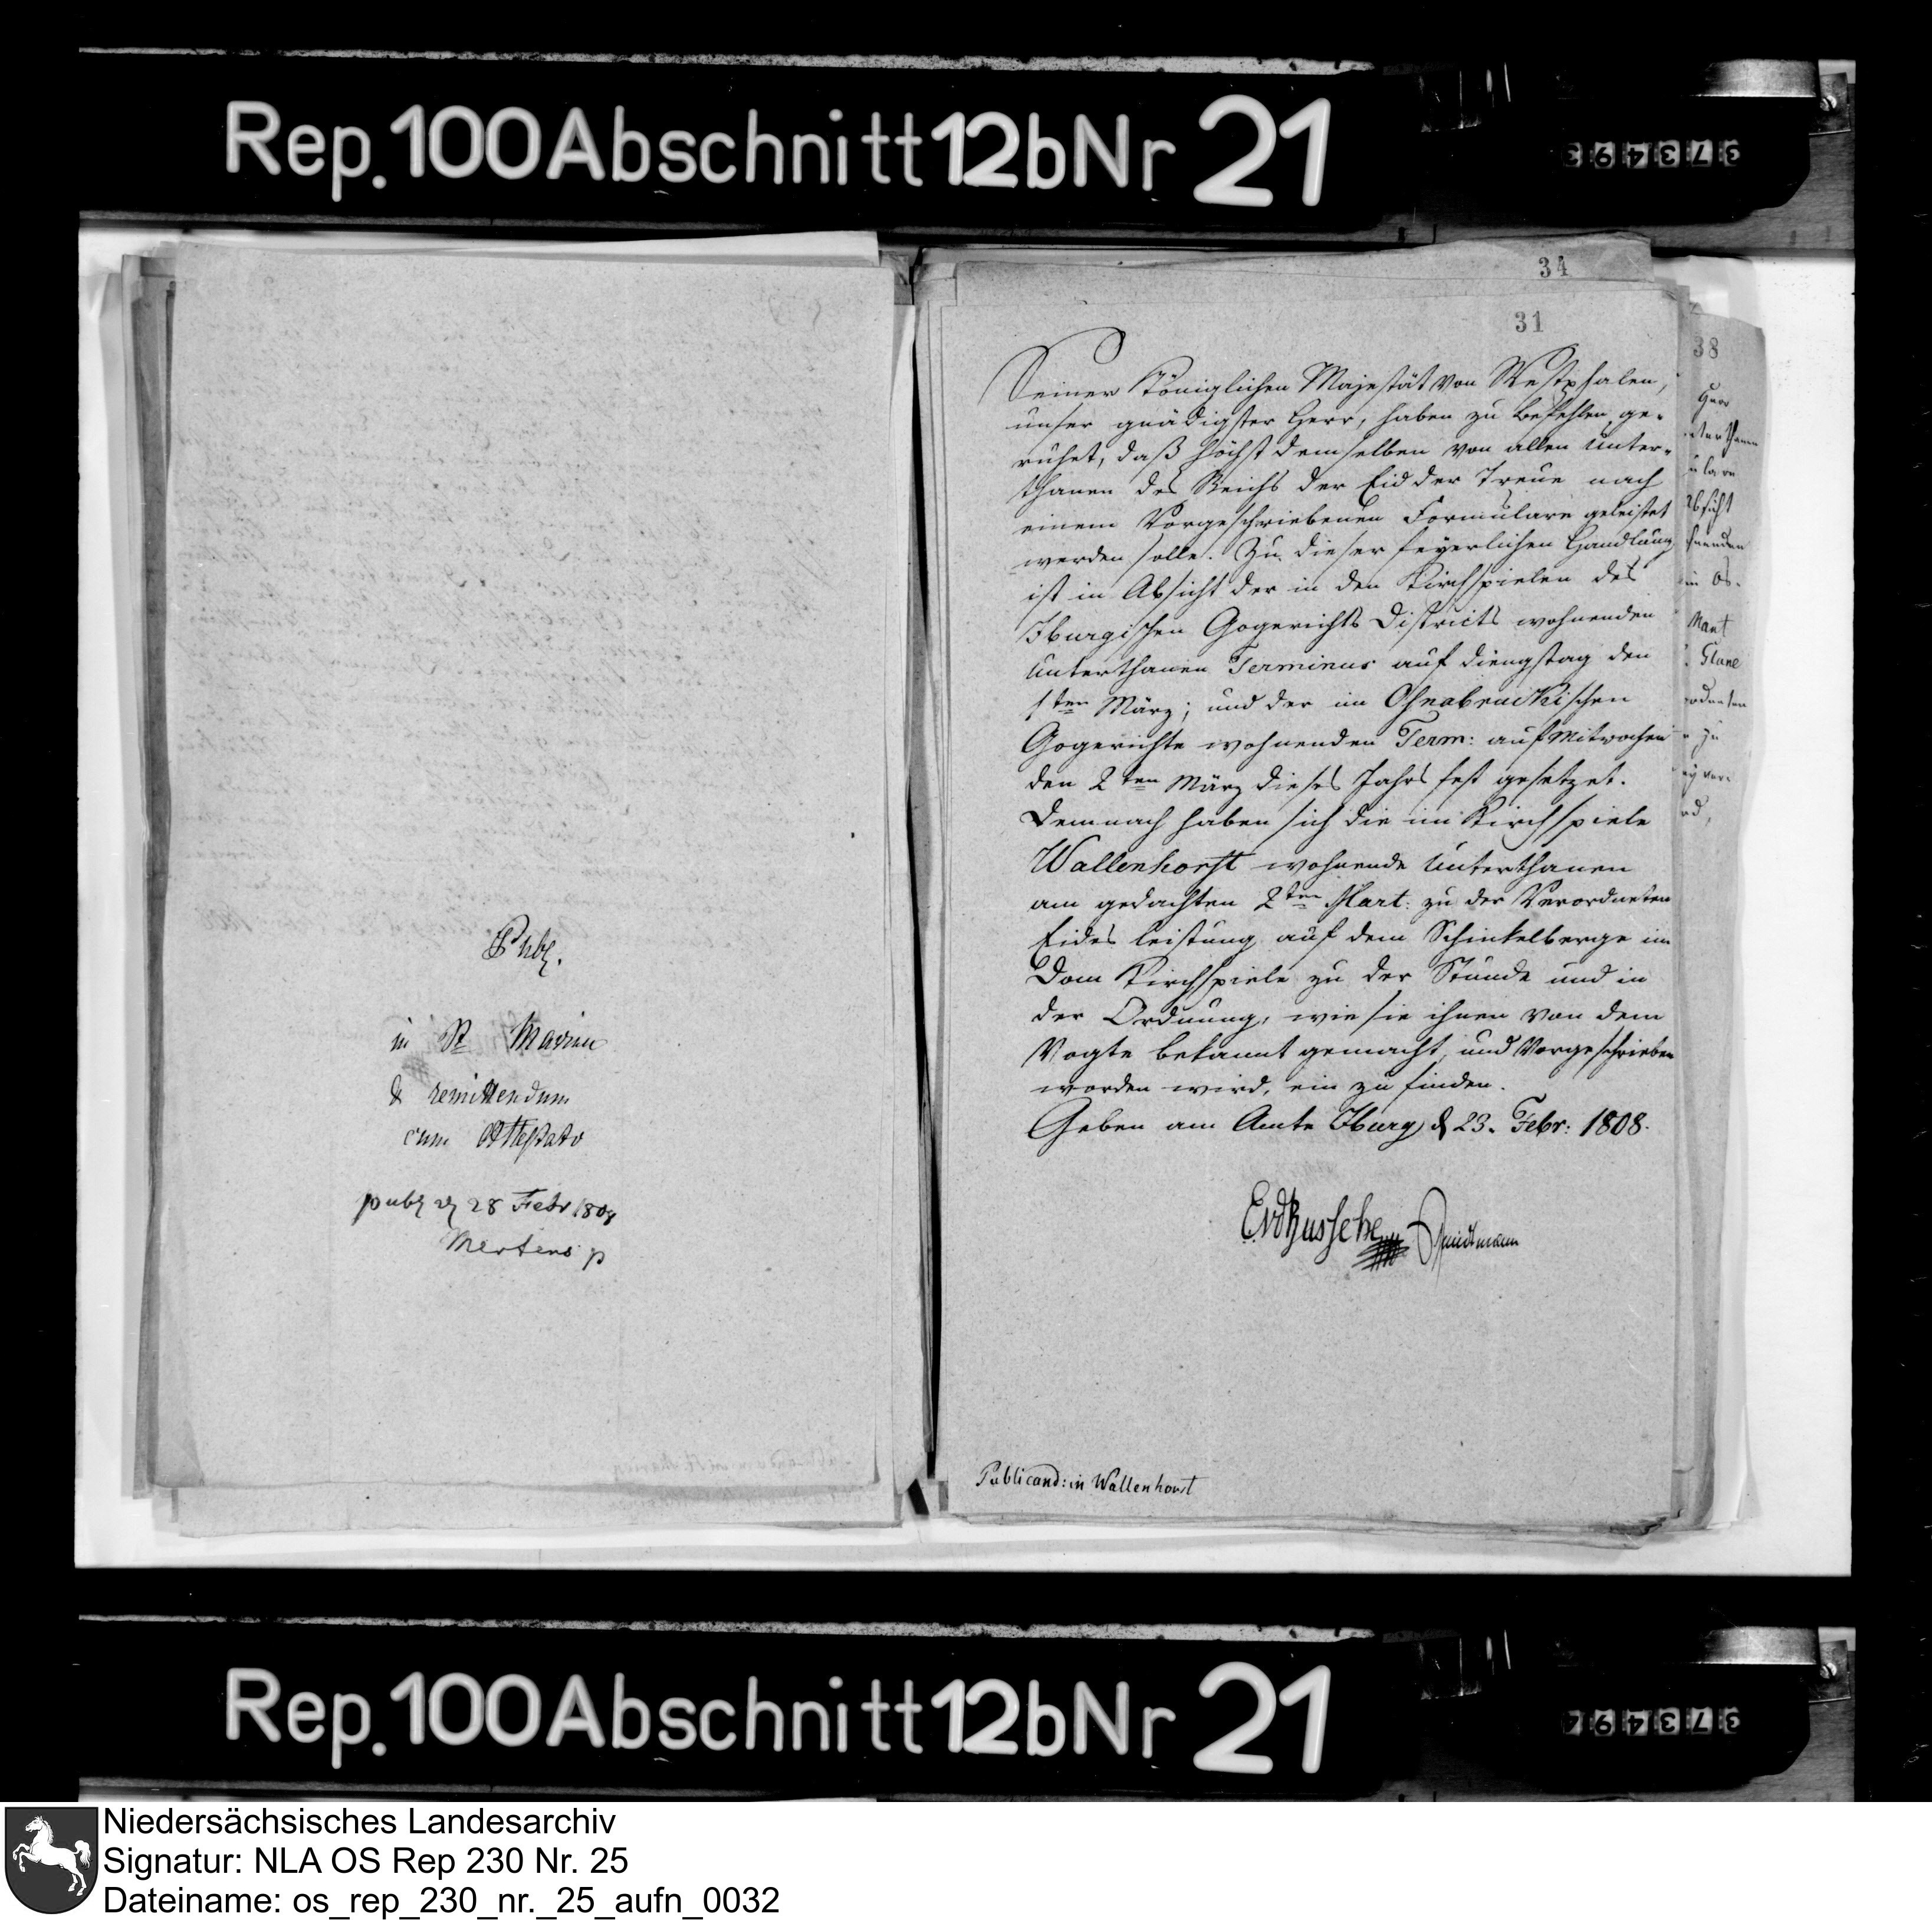 Rep. 100 Abschnitt 12b Nr 21
373493
Publ.
in St Marien
& remittendum
cum Attestato
publ d 28 Febr 1808
Mertens p
34
31
Seiner Königlichen Majestät von Westphalen,
unser gnädigster Herr, haben zu befehlen ge-
ruhet, daß höchst demselben von allen Unter-
thanen des Reichs der Eid der Treue nach
einem Vorgeschriebenen Formulare geleistet
werden solle. Zu dieser feyerlichen Handlung
ist in Absicht der in den Kirchspielen des
Iburgischen Gogerichts Districts wohnenden
Unterthanen Terminus auf Diengstag den
1ten März; und der im Osnabrückischen
Gogerichte wohnenden Term: auf Mitwochen
den 2ten März dieses Jahrs fest gesetzet.
Demnach haben sich die im Kirchspiele
Wallenhorst wohnende Unterthanen
am gedachten 2ten Mart: zu der Verordneten
Eides leistung auf dem Schinkelberge im
Dom Kirchspiele zu der Stunde und in
der Ordnung, wie sie ihnen von dem
Vogte bekannt gemacht, und Vorgeschrieben
worden wird, ein zu finden.
Geben am Amte Iburg d 23. Febr: 1808.
EvdBussche
Publicand: in Wallenhorst
38
terthanen
Absicht
in Os-
Mart
Glane
zu
Rep. 100 Abschnitt 12b Nr 21
373494
Niedersächsisches Landesarchiv
Signatur: NLA OS Rep 230 Nr. 25
Dateiname: os_rep_230_nr._25_aufn_0032